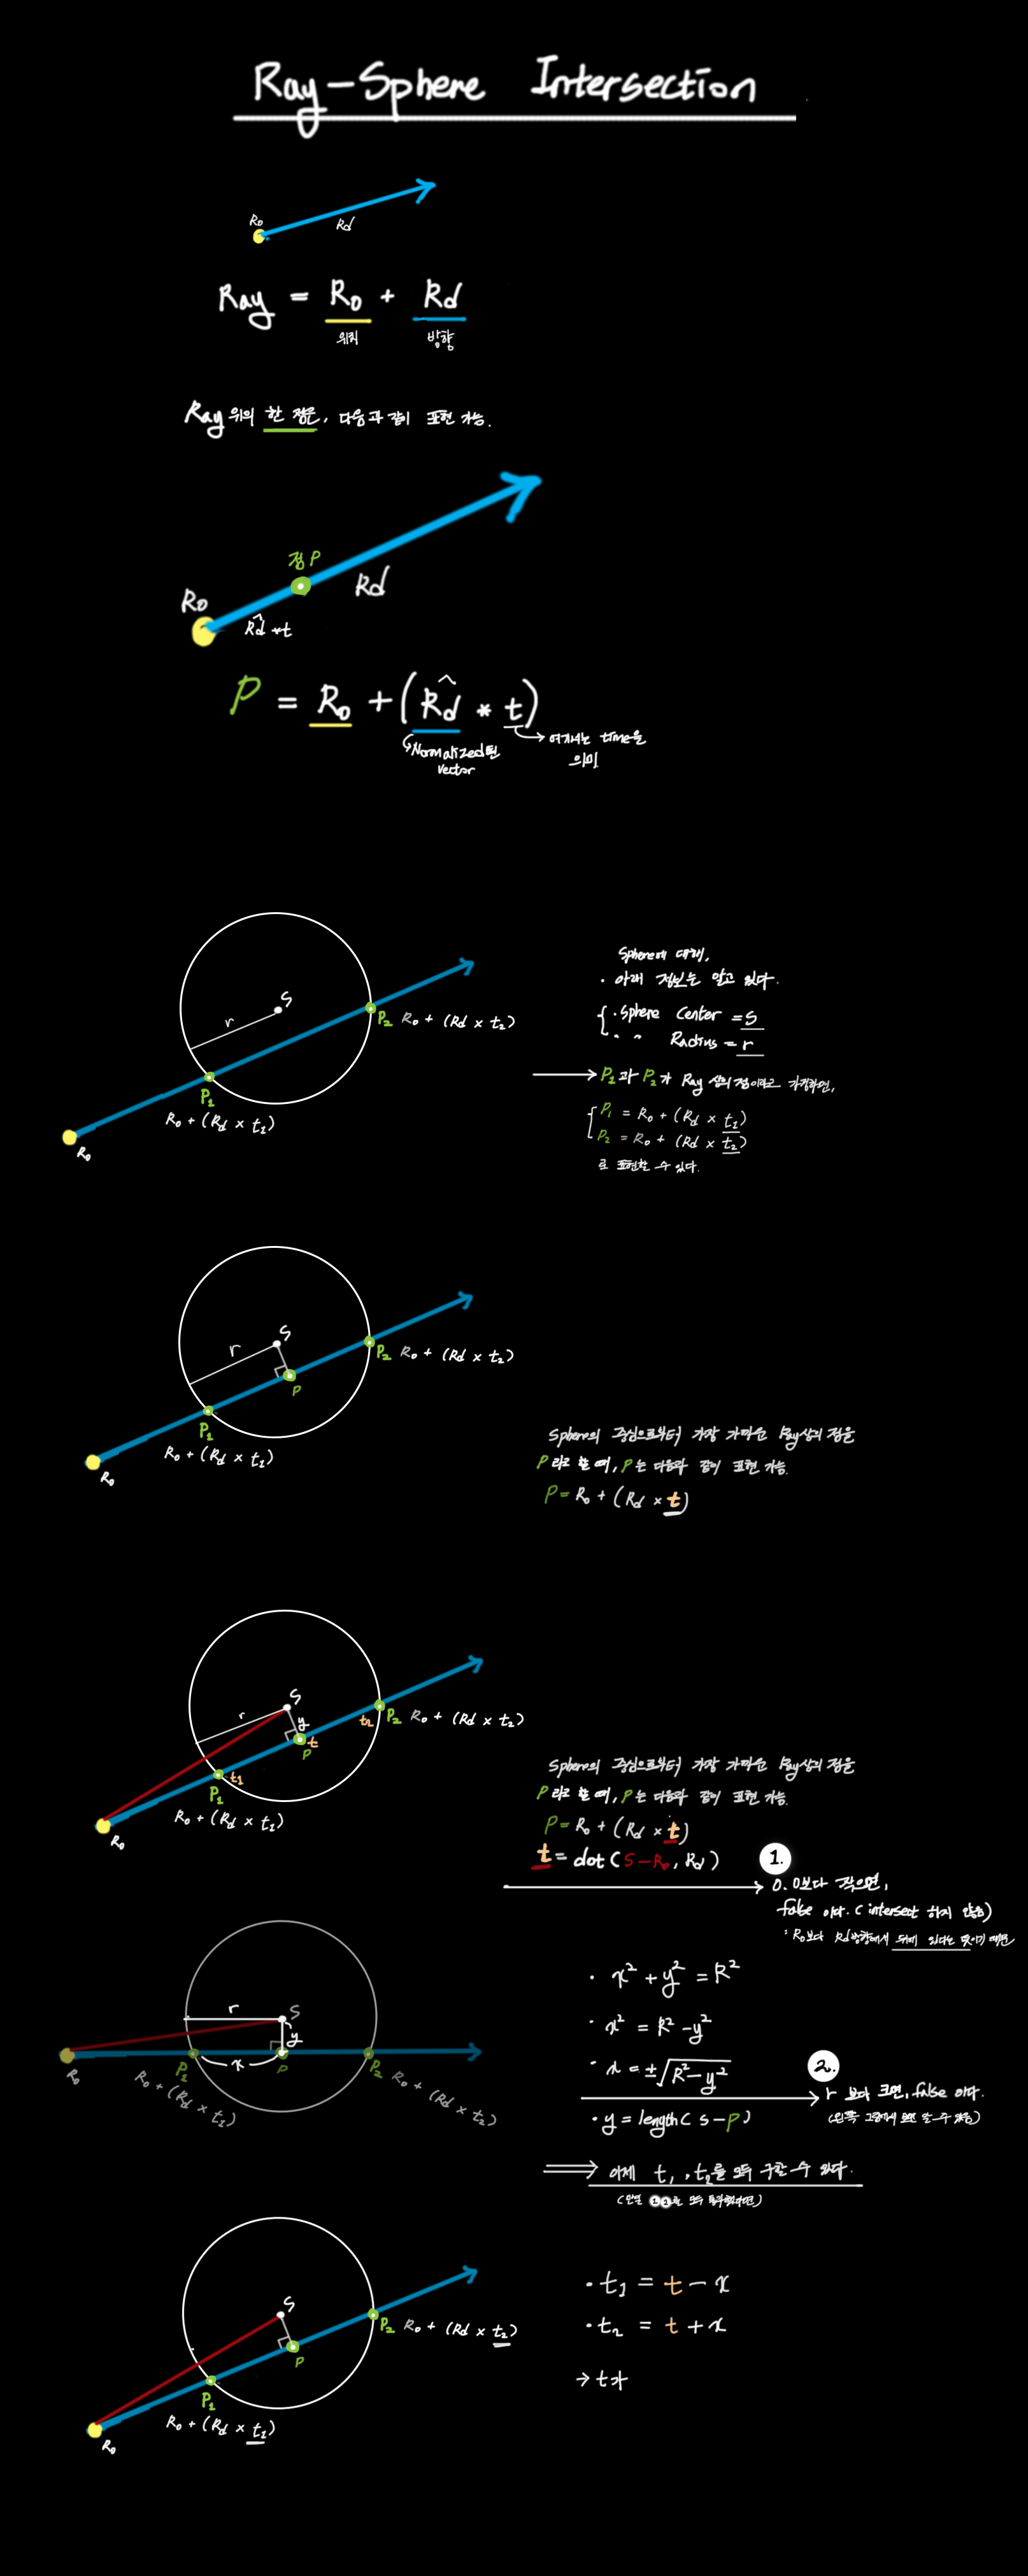 Ray-Sphere Intersection
Ro
Rd
Ray = Ro + Rd
위치 방향
Ray 위의 한 점은, 다음과 같이 표현 가능.
점 P
Rd
Ro
R̂d * t
P = Ro + (R̂d * t)
Normalized된 vector
여기서는 time을 의미
S
r
P₂ Ro + (Rd × t₂)
P₁
Ro + (Rd × t₁)
Ro
Sphere에 대해,
· 아래 정보는 알고 있다.
· Sphere Center = S
· " Radius = r
→ P₁과 P₂가 Ray 상의 점이라고 가정하면,
P₁ = Ro + (Rd × t₁)
P₂ = Ro + (Rd × t₂)
로 표현할 수 있다.
S
r
P₂ Ro + (Rd × t₂)
P
P₁
Ro + (Rd × t₁)
Ro
Sphere의 중심으로부터 가장 가까운 Ray상의 점을
P라고 할 때, P는 다음과 같이 표현 가능.
P = Ro + (Rd × t)
S
r
y
t
P
t₂
P₂ Ro + (Rd × t₂)
t₁
P₁
Ro + (Rd × t₁)
Ro
Sphere의 중심으로부터 가장 가까운 Ray상의 점을
P라고 할 때, P는 다음과 같이 표현 가능.
P = Ro + (Rd × t)
t = dot(S-Ro, Rd)
1.
0.0보다 작으면,
false 이다. (intersect 하지 않음)
: Ro보다 Rd방향에서 뒤에 있다는 뜻이기 때문
r
S
y
x
Ro
P₁
P
P₂
Ro + (Rd × t₁)
Ro + (Rd × t₂)
· x² + y² = R²
· x² = R² - y²
· x = ±√R² - y²
2.
r 보다 크면, false 이다.
(왼쪽 그림에서 보면 알 수 있음)
· y = length(S-P)
⇒ 이제 t₁, t₂를 모두 구할 수 있다.
(만일 1 2를 모두 통과했다면)
S
P₂ Ro + (Rd × t₂)
P
P₁
Ro + (Rd × t₁)
Ro
· t₁ = t - x
· t₂ = t + x
→ t가